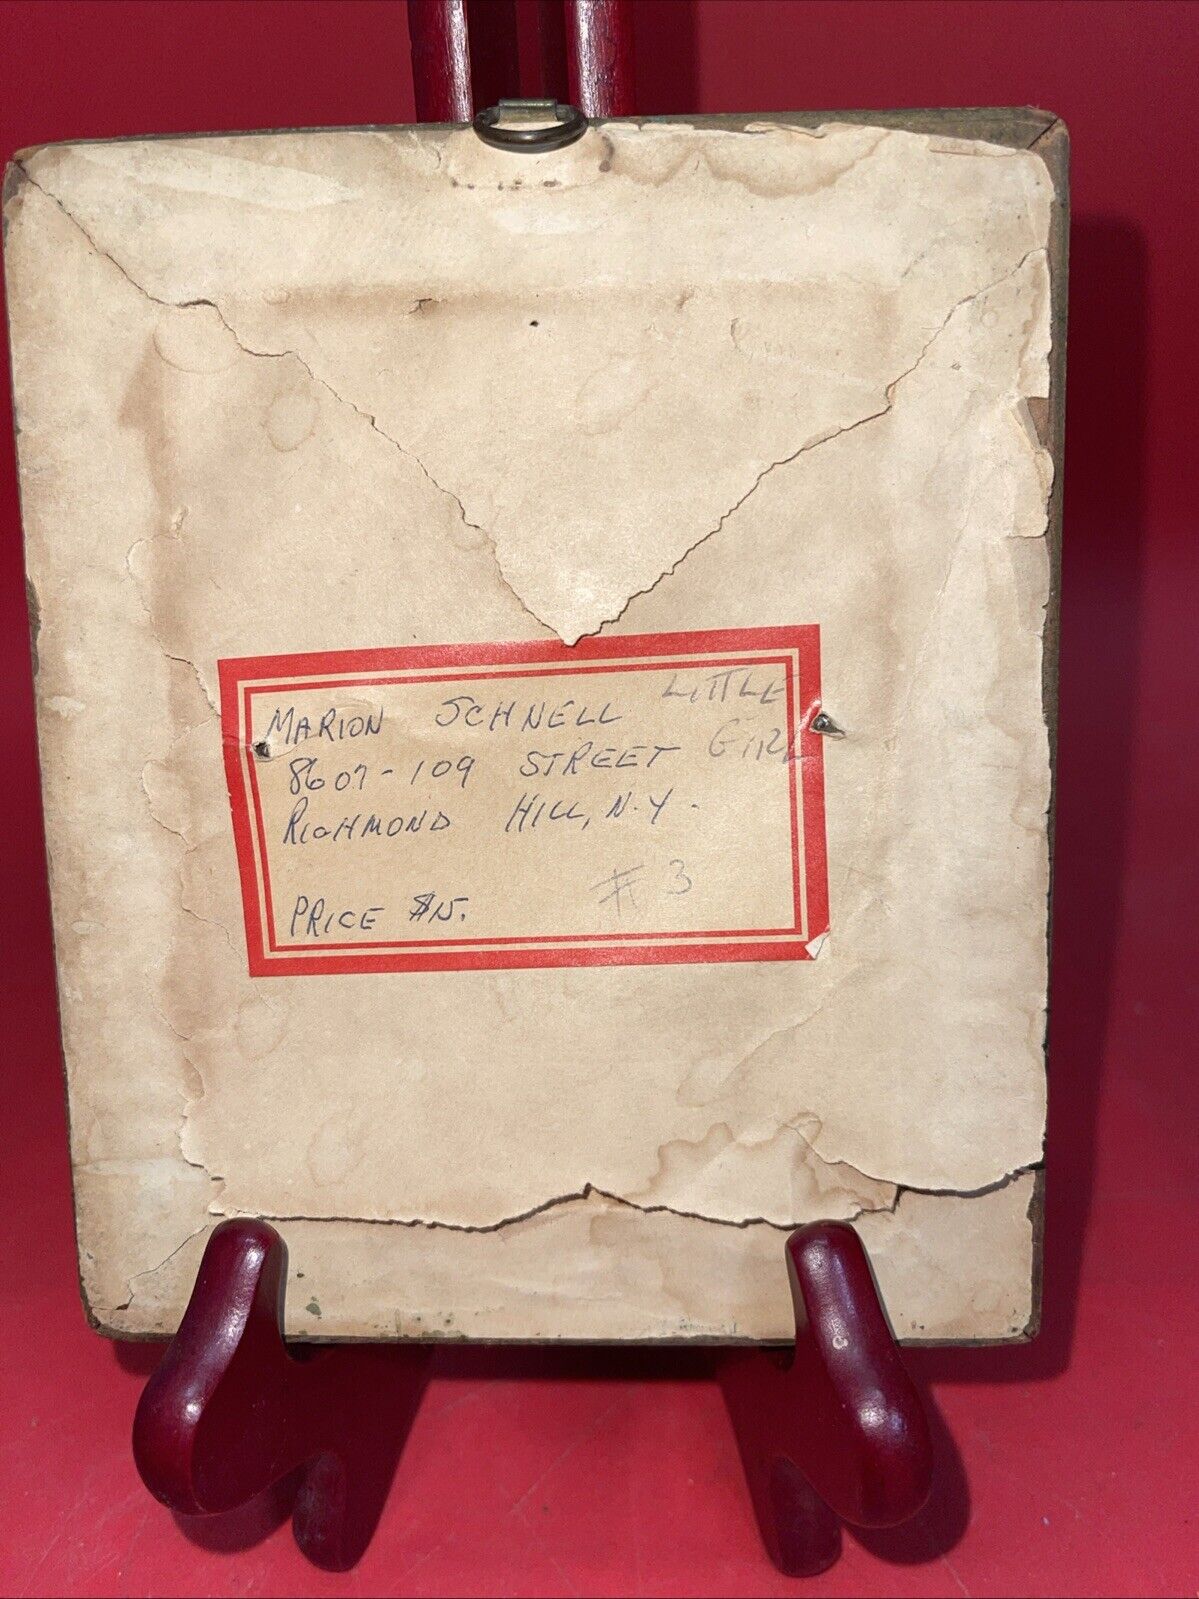 MARION SCHNELL LITTLE
8607-109 STREET GIRL
RICHMOND HILL, N.Y.
# 3
PRICE $15.